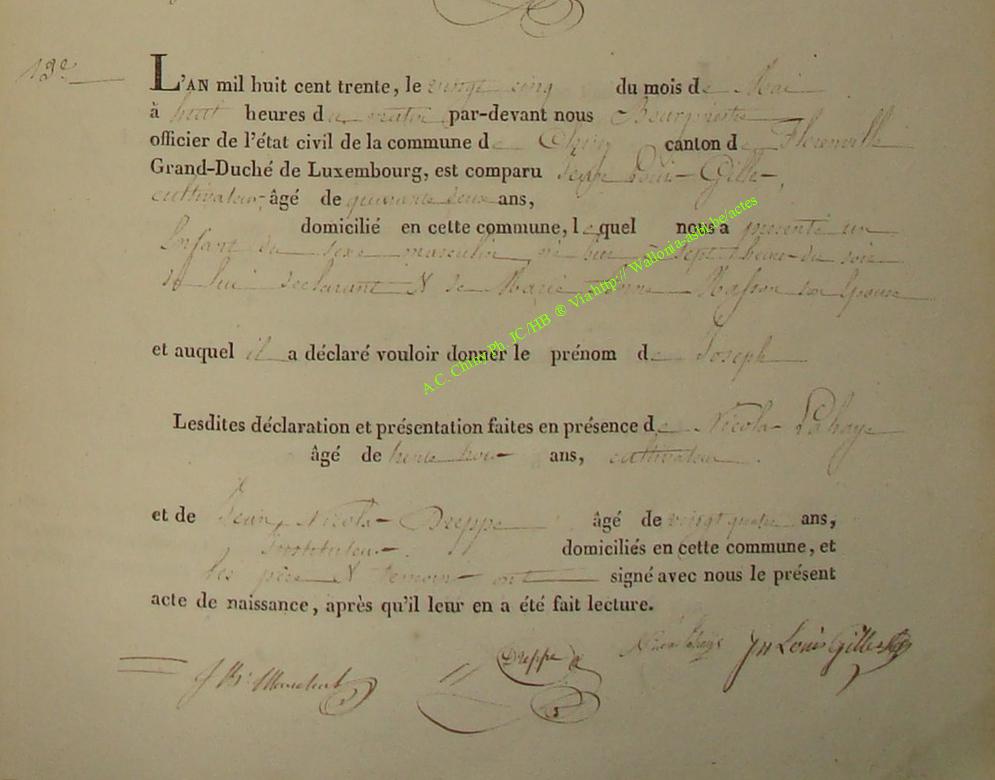 19e
L'AN mil huit cent trente, le vingt cinq du mois de Mai
à huit heures du matin par-devant nous Bourgmestre
officier de l'état civil de la commune de Chiny canton de Florenville
Grand-Duché de Luxembourg, est comparu Jean Louis Gille,
cultivateur, âgé de quarante deux ans,
domicilié en cette commune, lequel nous a présenté un
Enfant du sexe masculin, né hier à sept heures du soir
de lui déclarant & de Marie Anne Masson son épouse
et auquel il a déclaré vouloir donner le prénom de Joseph
Lesdites déclaration et présentation faites en présence de Nicolas Lahaye
âgé de trente ans, cultivateur.
et de Jean Nicolas Dreppe âgé de vingt quatre ans,
instituteur domiciliés en cette commune, et
les père & témoins ont signé avec nous le présent
acte de naissance, après qu'il leur en a été fait lecture.
Dreppe Jn Louis Gille
A.C. Chiny Ph. JC/HB ® Via http://Wallonia-asbl.be/actes